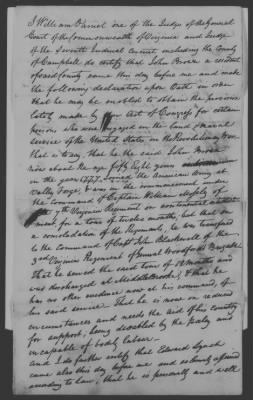 I William Daniel one of the Judges of the General
Court of the Commonwealth of Virginia and Judge
of the Seventh Judicial Circuit including the County
of Campbell do certify that John Brown a resident
of said County came this day before me and made
the following declaration upon Oath in order
that he may be enabled to obtain the provision
lately made by an Act of Congress for certain
persons who were engaged in the land & naval
service of the United States in the Revolutionary War
that is to say, that he the said John Brown
now about the age fifty eight years
in the year 1777 joined the American Army at
Valley Forge, & was in the commencement under
the command of Captain William
of the 7th Virginia Regiment on continental establish
ment, for a tour of twelve months, but that on
a consolidation of the Regiments, he was transferred
to the Command of Capt John Blackwell of the
3rd Virginia Regiment of General Woodford's Brigade
That he served the said tour of 12 months and
was discharged at Middlebrook, & that he
has no other evidence now at his command, of
his said service. That he is now in reduced
circumstances and needs the aid of his country
for support, being disabled by the palsy and
incapable of bodily labour.
And I do further certify that Edward
came also this day before me and solemnly affirmed
according to law, that he is personally and well